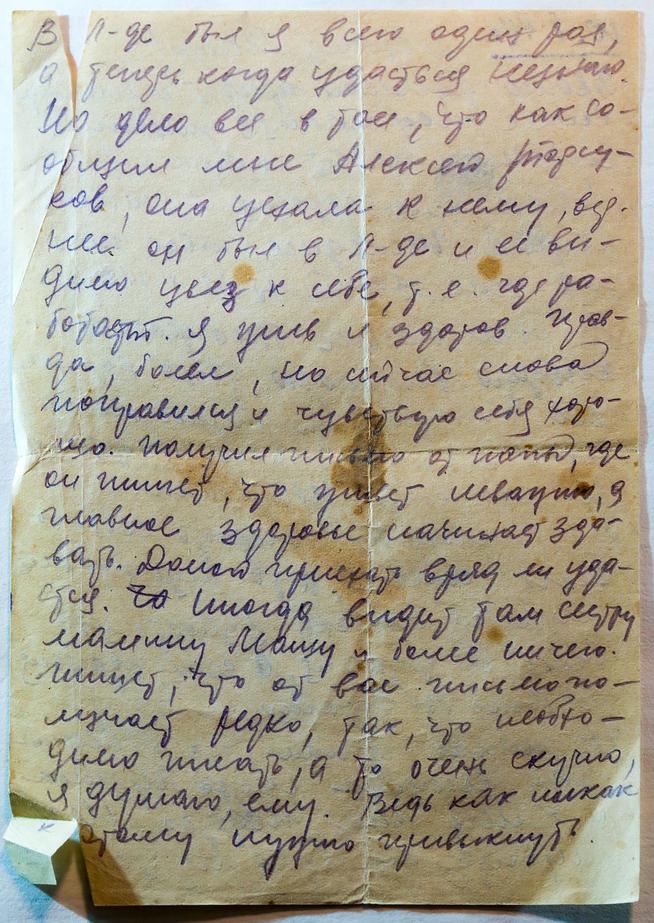 В Л-де был я всего один раз,
а теперь когда удасться неизвестно.
Но дело все в том, что как со-
общил мне Алексей
ков, она уехала к нему, вер-
нее он был в Л-де и ее ви-
димо увез к себе, т.е. где ра-
ботает. Я жив и здоров. Прав-
да, болел, но сейчас снова
поправился и чувствую себя хоро-
шо. Получил письмо от папы, где
он пишет, что живет неважно, а
главное здоровье начинает сда-
вать. Домой приехать вряд ли уда-
стся. Иногда видит там сестру
мамину Машу и более ничего.
Пишет, что от вас письма по-
лучает редко, так, что необхо-
димо писать, а то очень скучно,
я думаю, ему. Ведь как никак
этому нужно привыкнуть